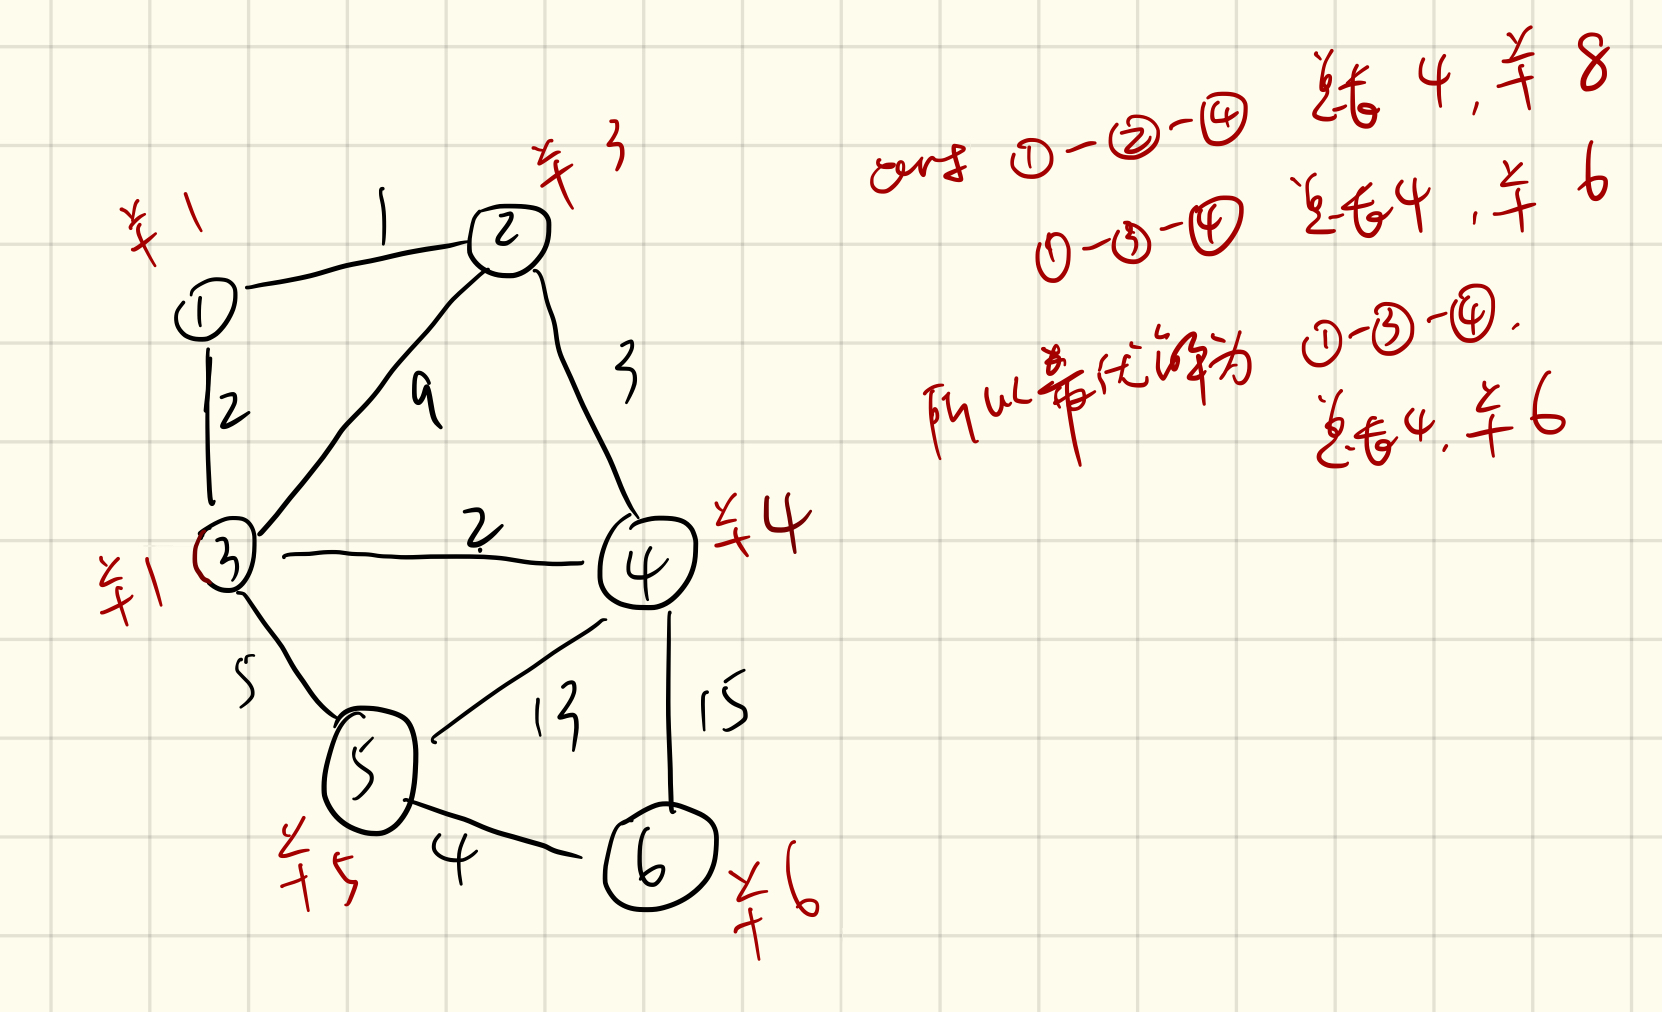 ¥ 3
¥ 1
1
②
①
2
9
3
③
2
④
¥4
¥1
5
13
15
⑤
4
⑥
¥5
¥6
①-②-④ 总长 4, ¥ 8
①-③-④ 总长4, ¥ 6
所以最优解为 ①-③-④.
总长4, ¥6